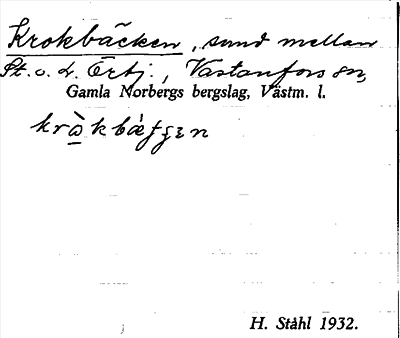 Krokbäcken, sund mellan
St. o. L. Örtj., Västanfors sn,
Gamla Norbergs bergslag, Västm. l.
H. Ståhl 1932.